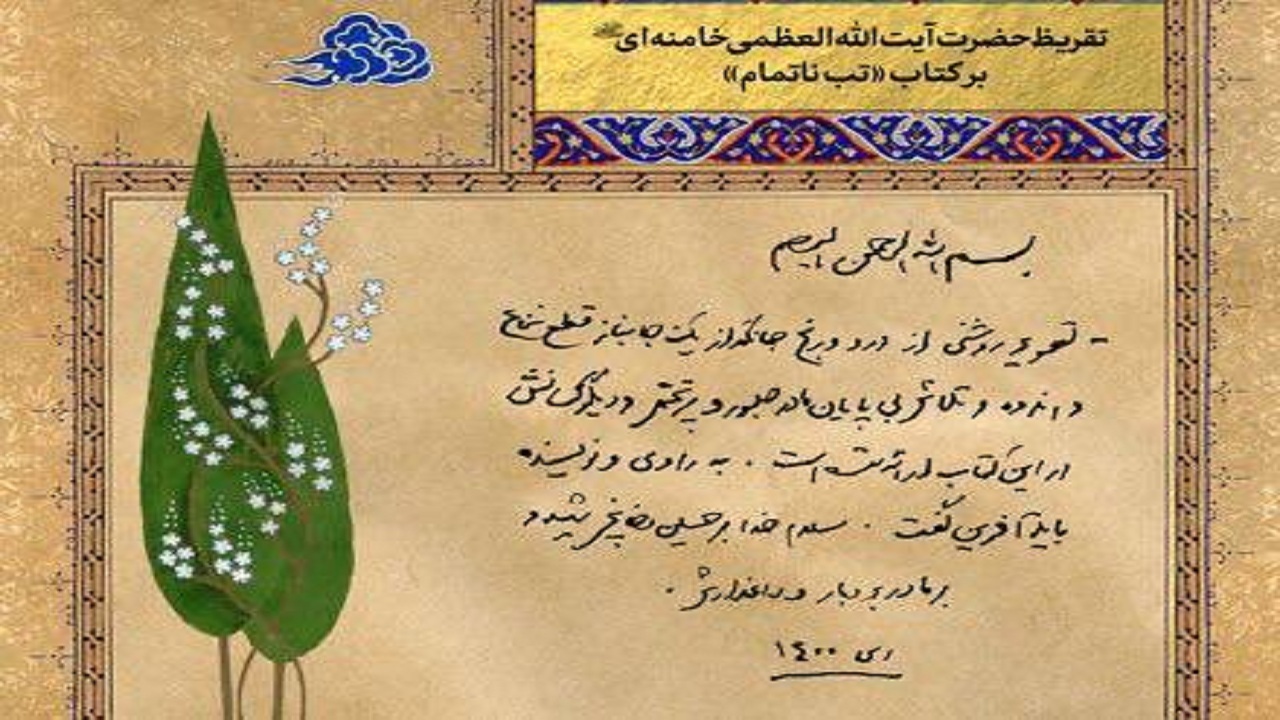 تقریظ حضرت آیت الله العظمی خامنه‌ای
بر کتاب «تب ناتمام»
بسم الله الرحمن الرحیم
- تصویر روشنی از درد و رنج جانگداز یک جانباز قطع نخاع
و اندوه و تلاش بی پایان مادر صبور و پرتحمل و دیگر کسانش
در این کتاب ارائه شده است . به راوی و نویسنده
باید آفرین گفت . سلام خدا بر حسین شهید و
بر مادر بردبار و داغدارش .
دی ۱۴۰۰